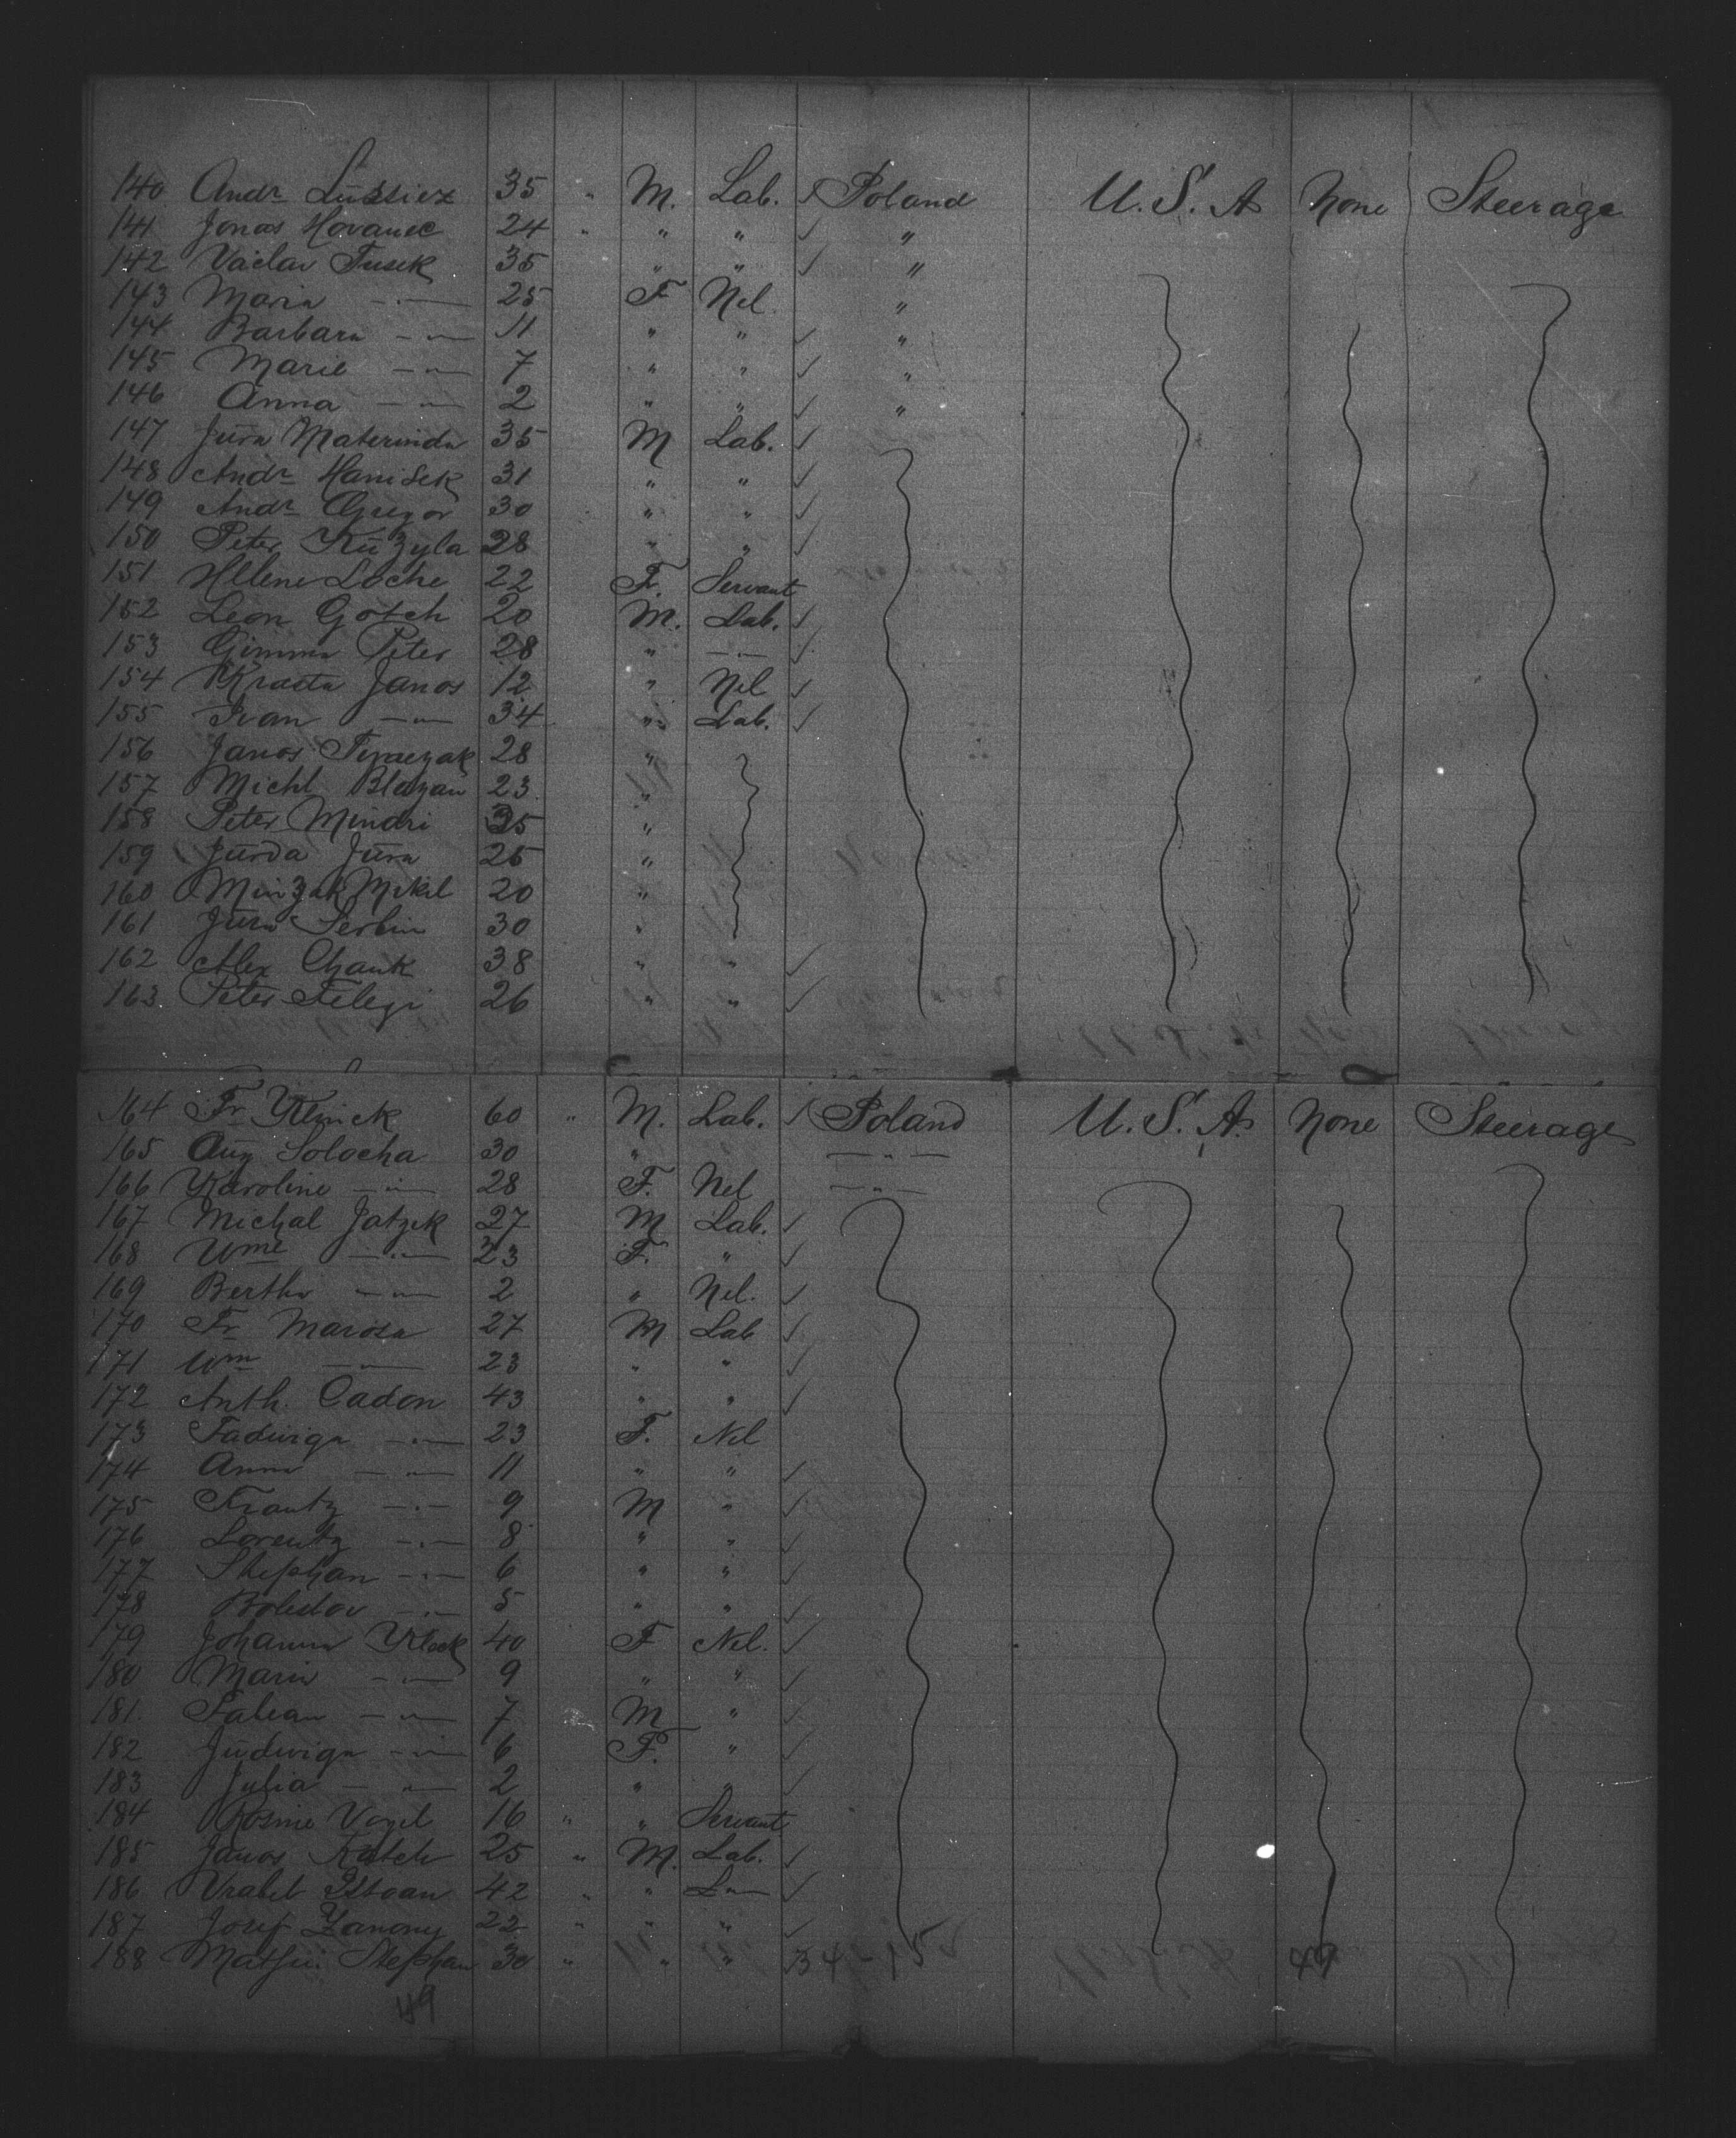 140 Andr Lussiez 35 " M. Lab. ✓ Poland U.S.A None Steerage
141 Jonas Hovanec 24 " " " ✓ "
142 Vaclav Tusek 35 " " ✓ "
143 Maria —"— 25 F Nel "
144 Barbara —"— 11 " " ✓ "
145 Marie —"— 7 " " ✓ "
146 Anna —"— 2 " " ✓ "
147 Jura Materinda 35 M Lab. ✓
148 Andr Hanisek 31 " " ✓
149 Andr Gregor 30 " " ✓
150 Peter Kuzyla 28 " " ✓
151 Helene Loche 22 F. Servant
152 Leon Gotch 20 M. Lab. ✓
153 Gimma Peter 28 " —"— ✓
154 Kracta Janos 12 " Nel ✓
155 Ivan —"— 34 " Lab. ✓
156 Janos 28 "
157 Michl Blazan 23 "
158 Peter Mindri 35 "
159 Jurda Jura 25 "
160 Minzak Mikel 20 "
161 Jura Serbin 30 "
162 Alex Chank 38 " " ✓
163 Peter Felegi 26 " " ✓
164 Fr Klinek 60 " M. Lab. ✓ Poland U.S.A. None Steerage
165 Aug Solocha 30 " —"—
166 Karoline —"— 28 F. Nel —"—
167 Michal Jatzek 27 M Lab. ✓
168 Wme —"— 23 F. " ✓
169 Bertha —"— 2 " Nel. ✓
170 Fr Marosa 27 M Lab ✓
171 Wm —"— 23 " " ✓
172 Anth. Cadon 43 " " ✓
173 Fadwiga —"— 23 F. Nel
174 Anna —"— 11 " " ✓
175 Frantz —"— 9 M " ✓
176 Lorentz —"— 8 " " ✓
177 Stephan —"— 6 " " ✓
178 —"— 5 " " ✓
179 Johanna Klock 40 F Nel. ✓
180 Maria —"— 9 " " ✓
181. Fabean —"— 7 M " ✓
182 Judwiga —"— 6 F. " ✓
183 Julia —"— 2 " " ✓
184 Rosine Vogel 16 " " Servant
185 Janos Katch 25 " M. Lab. ✓
186 Vrabel Istvan 42 " " L"— ✓
187 Josef Zanony 22 " " " ✓
188 Stephan 30 " " " ✓ 49
49